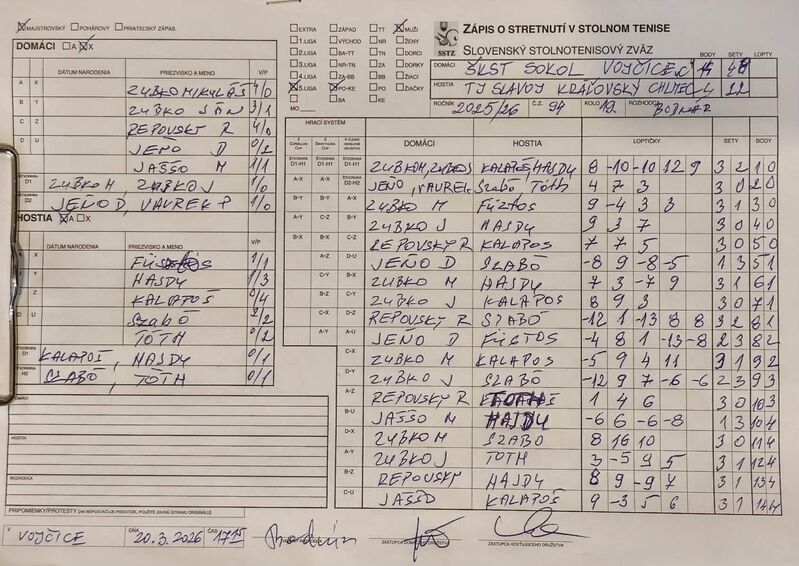 MAJSTROVSKÝ POHÁROVÝ PRIATEĽSKÝ ZÁPAS
DOMÁCI A X
DÁTUM NARODENIA PRIEZVISKO A MENO V/P
A X ZUBKO MIKULÁŠ 4/0
B Y ZUBKO JÁN 3/1
C Z REPOVSKÝ R 4/0
D U JEŇO D 0/2
JAŠŠO M 1/1
ŠTVORHRA D1 ZUBKO M, ZUBKO J 1/0
D2 JEŇO D, VAUREK P 1/0
HOSTIA A X
DÁTUM NARODENIA PRIEZVISKO A MENO V/P
X 1/1
Y HAJDY 1/3
Z KALAPOŠ 0/4
D U Szabó 2/2
TÓTH 0/2
ŠTVORHRA D1 KALAPOŠ, HAJDY 0/1
ŠTVORHRA H2 SZABÓ, TÓTH 0/1
DOMÁCI
HOSTIA
ROZHODCA
PRIPOMIENKY/PROTESTY (AK NEPOSTAČUJE PRIESTOR, POUŽITE ZADNÚ STRANU ORIGINÁLU)
V VOJČICE DŇA 20.3.2026 ČAS 17 15
EXTRA ZÁPAD TT MUŽI
1.LIGA VÝCHOD NR ŽENY
2.LIGA BA-TT TN DORCI
3.LIGA NR-TN ZA DORKY
4.LIGA ZA-BB BB ŽIACI
5.LIGA PO-KE PO ŽIAČKY
MO BA KE
SSTZ
ZÁPIS O STRETNUTÍ V STOLNOM TENISE
SLOVENSKÝ STOLNOTENISOVÝ ZVÄZ
BODY SETY LOPTY
DOMÁCI ŠKST SOKOL VOJČICE C 14
HOSTIA TJ SLAVOJ KRÁĽOVSKÝ CHLMEC 4 22
ROČNÍK 2025/26 Č.Z. 94 KOLO 19. ROZHODCA BODNÁR
HRACÍ SYSTÉM DOMÁCI HOSTIA LOPTIČKY SETY BODY
ŠTVORHRA D1-H1 ZUBKOM, ZUBKOJ KALAPOŠ, HAJDY 8 -10 -10 12 9 3 2 1 0
A-X ŠTVORHRA D2-H2 JEŇO, VAUREK Szabó, Tóth 4 7 3 3 0 2 0
B-Y A-X ZUBKO M 9 -4 3 3 3 1 3 0
A-Y C-Z B-Y ZUBKO J HAJDY 9 3 7 3 0 4 0
B-X B-X C-Z REPOVSKÝ R KALAPOS 7 7 5 3 0 5 0
A-Z D-U JEŇO D SZABÓ -8 9 -8 -5 1 3 5 1
C-Y B-X ZUBKO M HAJDY 7 3 -7 9 3 1 6 1
B-Z C-Y ZUBKO J KALAPOŠ 8 9 3 3 0 7 1
C-X D-Z REPOVSKÝ R SZABÓ -12 1 -13 8 8 3 2 8 1
A-Y A-U JEŇO D FÜSTOS -4 8 1 -13 -8 2 3 8 2
C-X ZUBKO M KALAPOS -5 9 4 11 3 1 9 2
D-Y ZUBKO J SZABÓ -12 9 7 -6 -6 2 3 9 3
A-Z REPOVSKÝ R TOTH 1 4 6 3 0 10 3
B-U JAŠŠO M HAJDY -6 6 -6 -8 1 3 10 4
D-X ZUBKO M SZABO 8 16 10 3 0 11 4
A-Y ZUBKO J TOTH 3 -5 9 5 3 1 12 4
B-Z REPOVSKÝ HAJDY 8 9 -9 7 3 1 13 4
C-U JAŠŠO KALAPOŠ 9 -3 5 6 3 1 14 4
ZÁSTUPCA DOMÁCEHO DRUŽSTVA ZÁSTUPCA HOSŤUJÚCEHO DRUŽSTVA